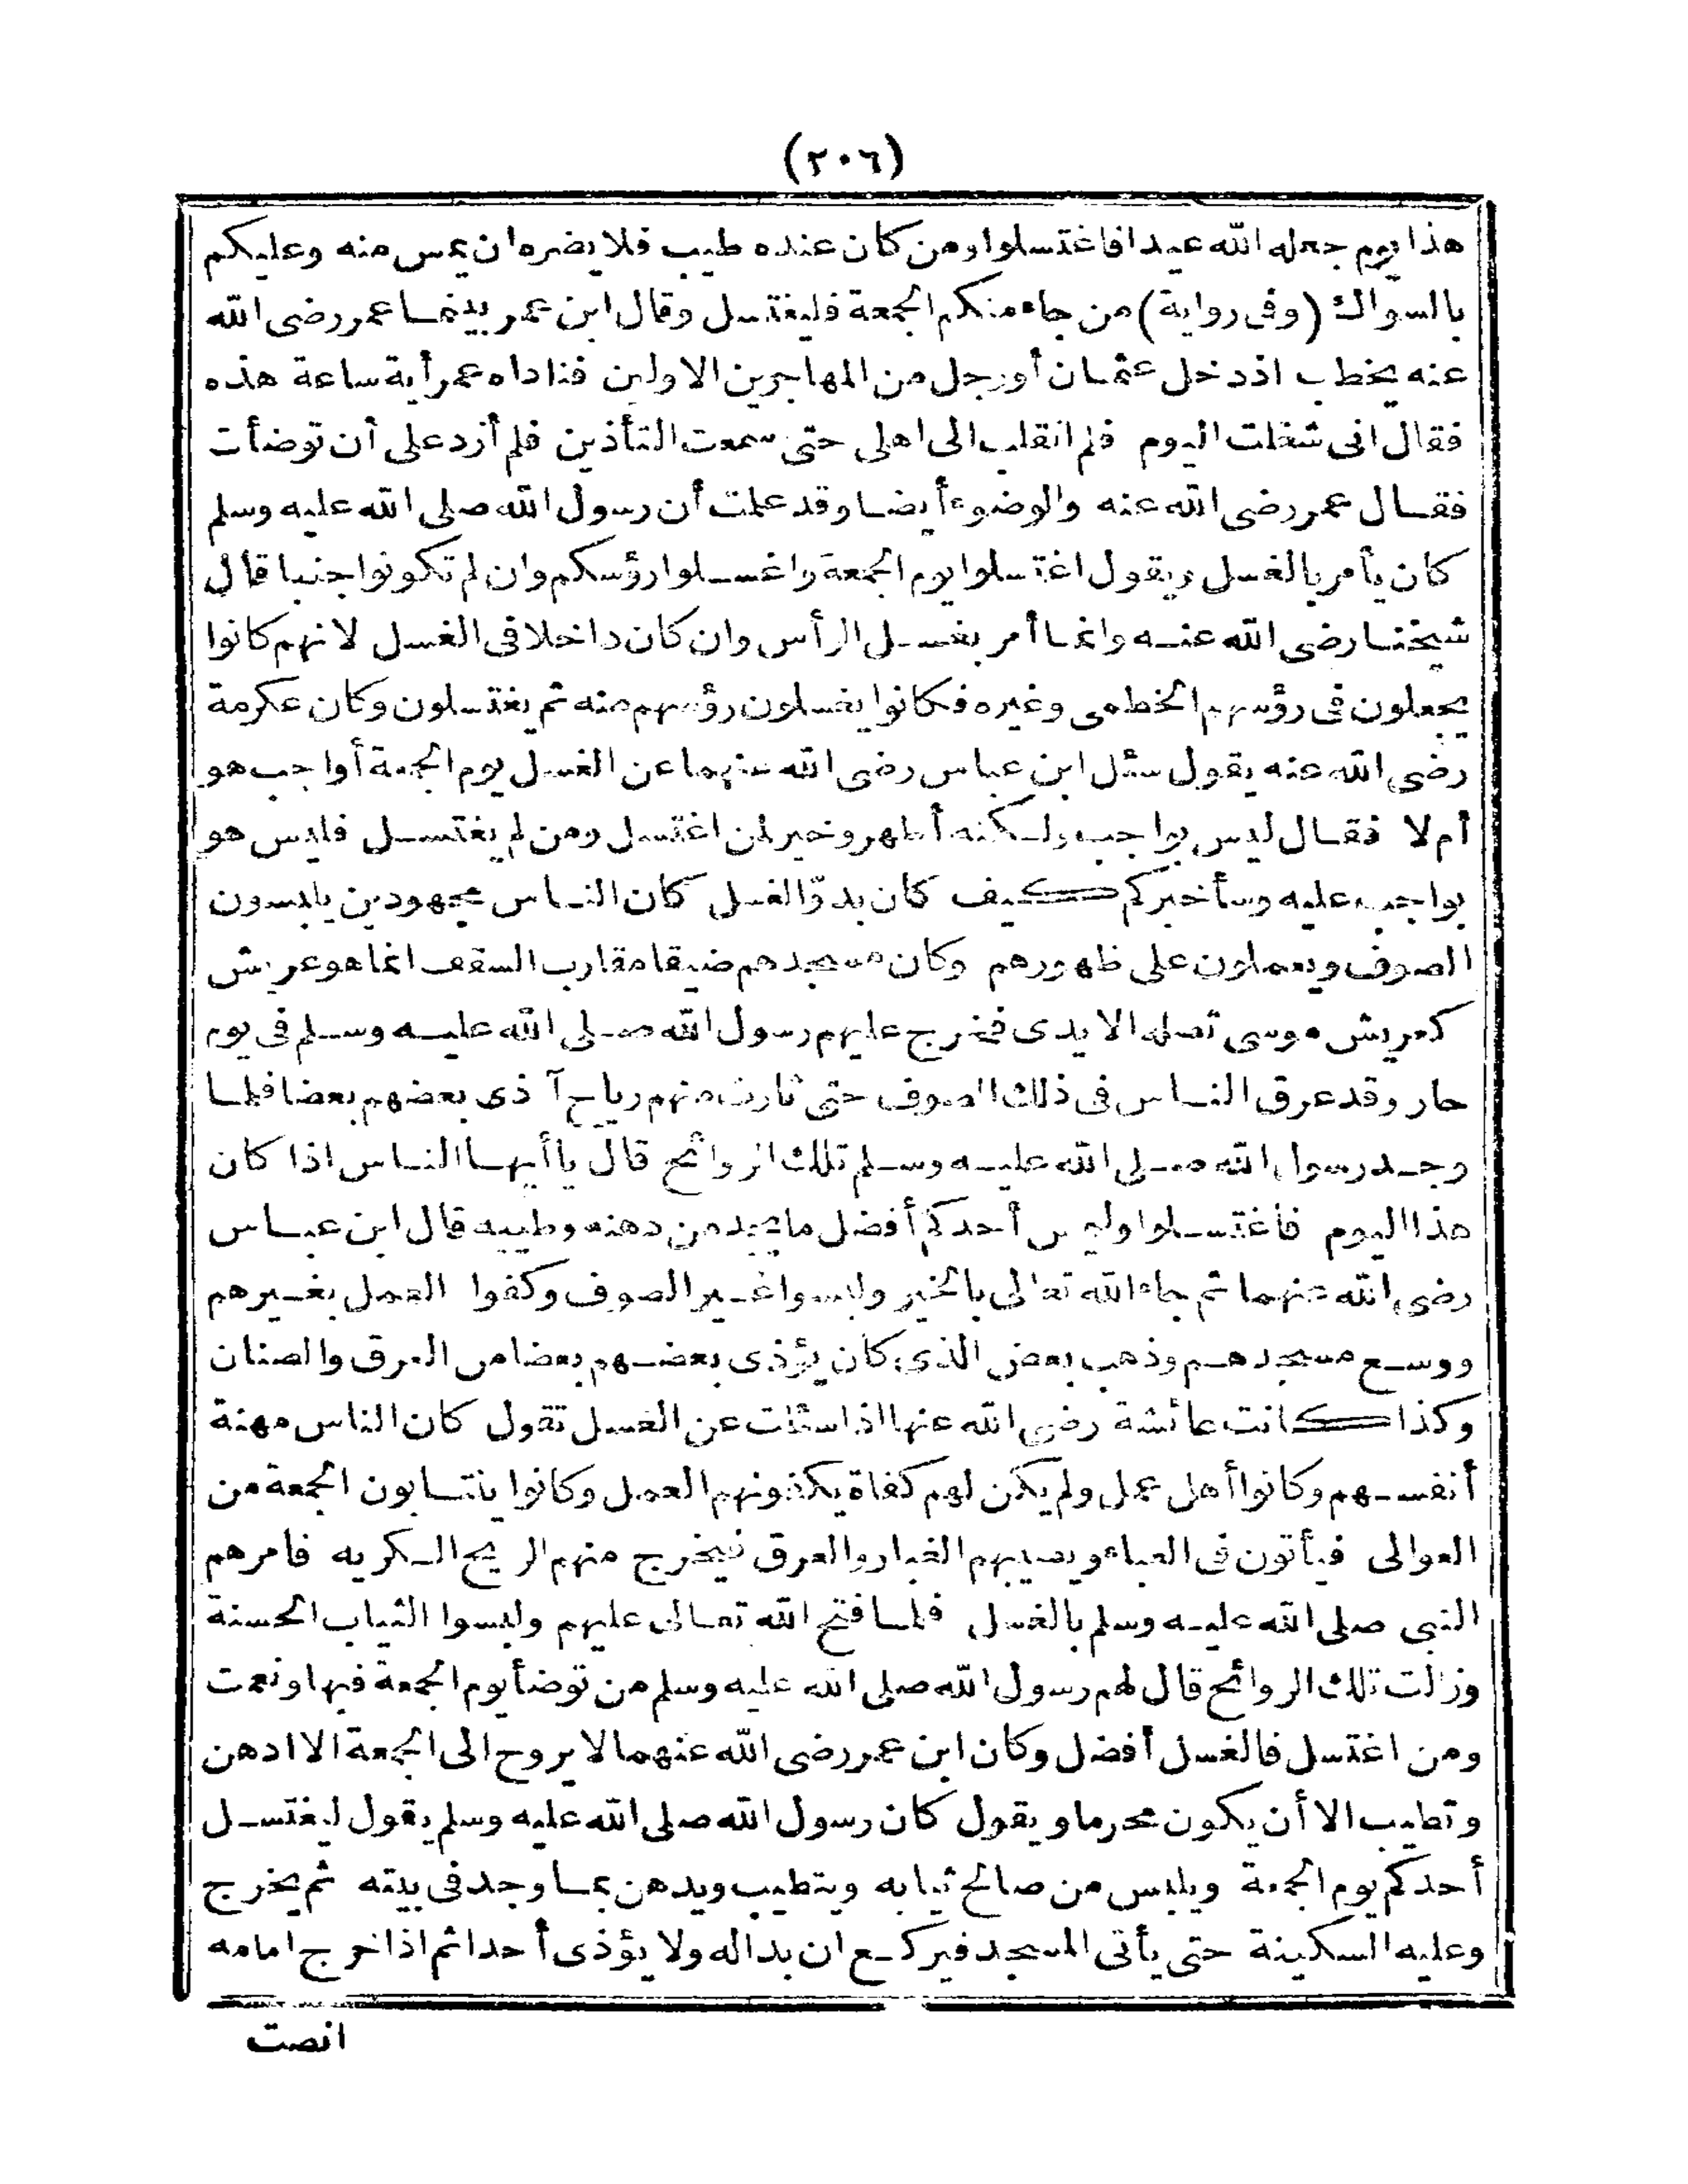 (٢٠٦)
هذا يوم جعله الله عيدا فاغتسلوا ومن كان عنده طيب فلا يضره ان يمس منه وعليكم
بالسواك (وفى رواية) من جاء منكم الجمعة فليغتسل وقال ابن عمر بينما عمر رضى الله
عنه يخطب اذ دخل عثمان أو رجل من المهاجرين الاولين فناداه عمر أية ساعة هذه
فقال انى شغلت اليوم فلم انقلب الى اهلى حتى سمعت التأذين فلم أزد على أن توضأت
فقال عمر رضى الله عنه والوضوء أيضا وقد علمت أن رسول الله صلى الله عليه وسلم
كان يأمر بالغسل ويقول اغتسلوا يوم الجمعة واغسلوا رؤسكم وان لم تكونوا جنبا قال
شيخنا رضى الله عنه وانما أمر بغسل الرأس وان كان داخلا فى الغسل لانهم كانوا
يجعلون فى رؤسهم الخطمى وغيره فكانوا يغسلون رؤسهم منه ثم يغتسلون وكان عكرمة
رضى الله عنه يقول سئل ابن عباس رضى الله عنهما عن الغسل يوم الجمعة أواجب هو
أم لا فقال ليس بواجب ولكنه أطهر وخير لمن اغتسل ومن لم يغتسل فليس هو
بواجب عليه وسأخبركم كيف كان بدؤ الغسل كان الناس مجهودين يلبسون
الصوف ويعملون على ظهورهم وكان مسجدهم ضيقا مقارب السقف انما هو عريش
كعريش موسى تصله الايدى فخرج عليهم رسول الله صلى الله عليه وسلم فى يوم
حار وقد عرق الناس فى ذلك الصوف حتى ثارت منهم رياح آذى بعضهم بعضا فلما
وجد رسول الله صلى الله عليه وسلم تلك الروائح قال يا أيها الناس اذا كان
هذا اليوم فاغتسلوا وليمس أحدكم أفضل ما يجد من دهنه وطيبه قال ابن عباس
رضى الله عنهما ثم جاء الله تعالى بالخير ولبسوا غير الصوف وكفوا العمل بغيرهم
ووسع مسجدهم وذهب بعض الذى كان يؤذى بعضهم بعضا من العرق والصنان
وكذا كانت عائشة رضى الله عنها اذا سئلت عن الغسل تقول كان الناس مهنة
أنفسهم وكانوا أهل عمل ولم يكن لهم كفاة يكفونهم العمل وكانوا ينتابون الجمعة من
العوالى فيأتون فى العباء ويصيبهم الغبار والعرق فيخرج منهم الريح الكريه فامرهم
النبى صلى الله عليه وسلم بالغسل فلما فتح الله تعالى عليهم ولبسوا الثياب الحسنة
وزالت تلك الروائح قال لهم رسول الله صلى الله عليه وسلم من توضأ يوم الجمعة فبها ونعمت
ومن اغتسل فالغسل أفضل وكان ابن عمر رضى الله عنهما لا يروح الى الجمعة الا ادهن
وتطيب الا أن يكون محرما ويقول كان رسول الله صلى الله عليه وسلم يقول ليغتسل
أحدكم يوم الجمعة ويلبس من صالح ثيابه ويتطيب ويدهن بما وجد فى بيته ثم يخرج
وعليه السكينة حتى يأتى المسجد فيركع ان بدا له ولا يؤذى أحدا ثم اذا خرج امامه
انصت